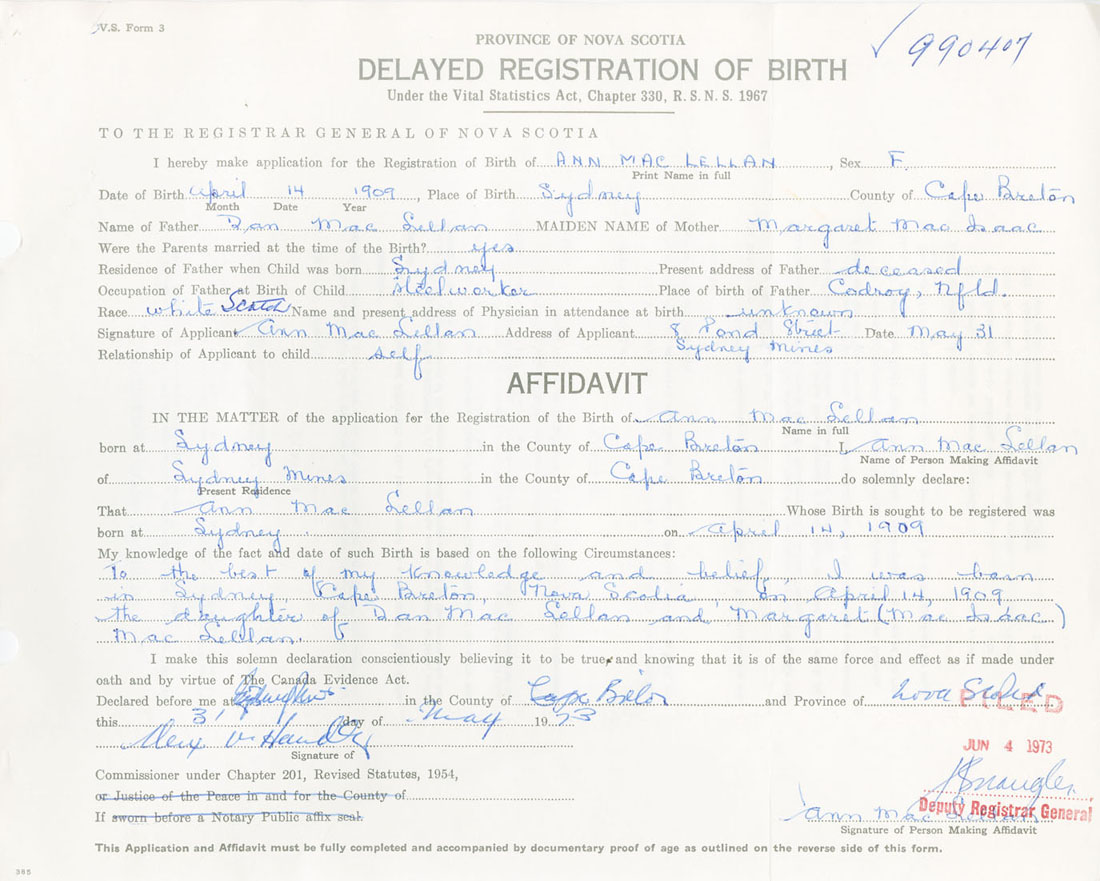 V.S. Form 3
990407
PROVINCE OF NOVA SCOTIA
DELAYED REGISTRATION OF BIRTH
Under the Vital Statistics Act, Chapter 330, R.S.N.S. 1967
TO THE REGISTRAR GENERAL OF NOVA SCOTIA
I hereby make application for the Registration of Birth of ANN MAC LELLAN, Sex F.
Print Name in full
Date of Birth April 14 1909, Place of Birth Sydney County of Cape Breton
Month Date Year
Name of Father Dan Mac Lellan MAIDEN NAME of Mother Margaret Mac Isaac
Were the Parents married at the time of the Birth? yes
Residence of Father when Child was born Sydney Present address of Father deceased
Occupation of Father at Birth of Child Steelworker Place of birth of Father Codroy, Nfld.
Race white Scotch Name and present address of Physician in attendance at birth unknown
Signature of Applicant Ann Mac Lellan Address of Applicant 8 Pond Street Date May 31
Sydney Mines
Relationship of Applicant to child self
AFFIDAVIT
IN THE MATTER of the application for the Registration of the Birth of Ann Mac Lellan
Name in full
born at Sydney in the County of Cape Breton I, Ann Mac Lellan
Name of Person Making Affidavit
of Sydney Mines in the County of Cape Breton do solemnly declare:
Present Residence
That Ann Mac Lellan Whose Birth is sought to be registered was
born at Sydney on April 14, 1909
My knowledge of the fact and date of such Birth is based on the following Circumstances:
To the best of my knowledge and belief, I was born
in Sydney, Cape Breton, Nova Scotia, on April 14, 1909
the daughter of Dan Mac Lellan and Margaret (Mac Isaac)
Mac Lellan.
I make this solemn declaration conscientiously believing it to be true, and knowing that it is of the same force and effect as if made under
oath and by virtue of The Canada Evidence Act.
Declared before me at in the County of Cape Breton and Province of Nova Scotia
FILED
this 31 day of May 1973
JUN 4 1973
Signature of
Commissioner under Chapter 201, Revised Statutes, 1954,
or Justice of the Peace in and for the County of
If sworn before a Notary Public affix seal.
Deputy Registrar General
Ann Mac Lellan
Signature of Person Making Affidavit
This Application and Affidavit must be fully completed and accompanied by documentary proof of age as outlined on the reverse side of this form.
385